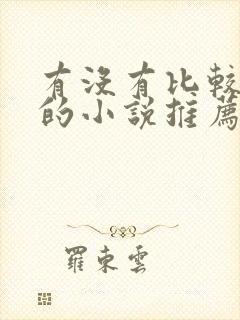 有沒有比較
的小說推薦
羅東雲